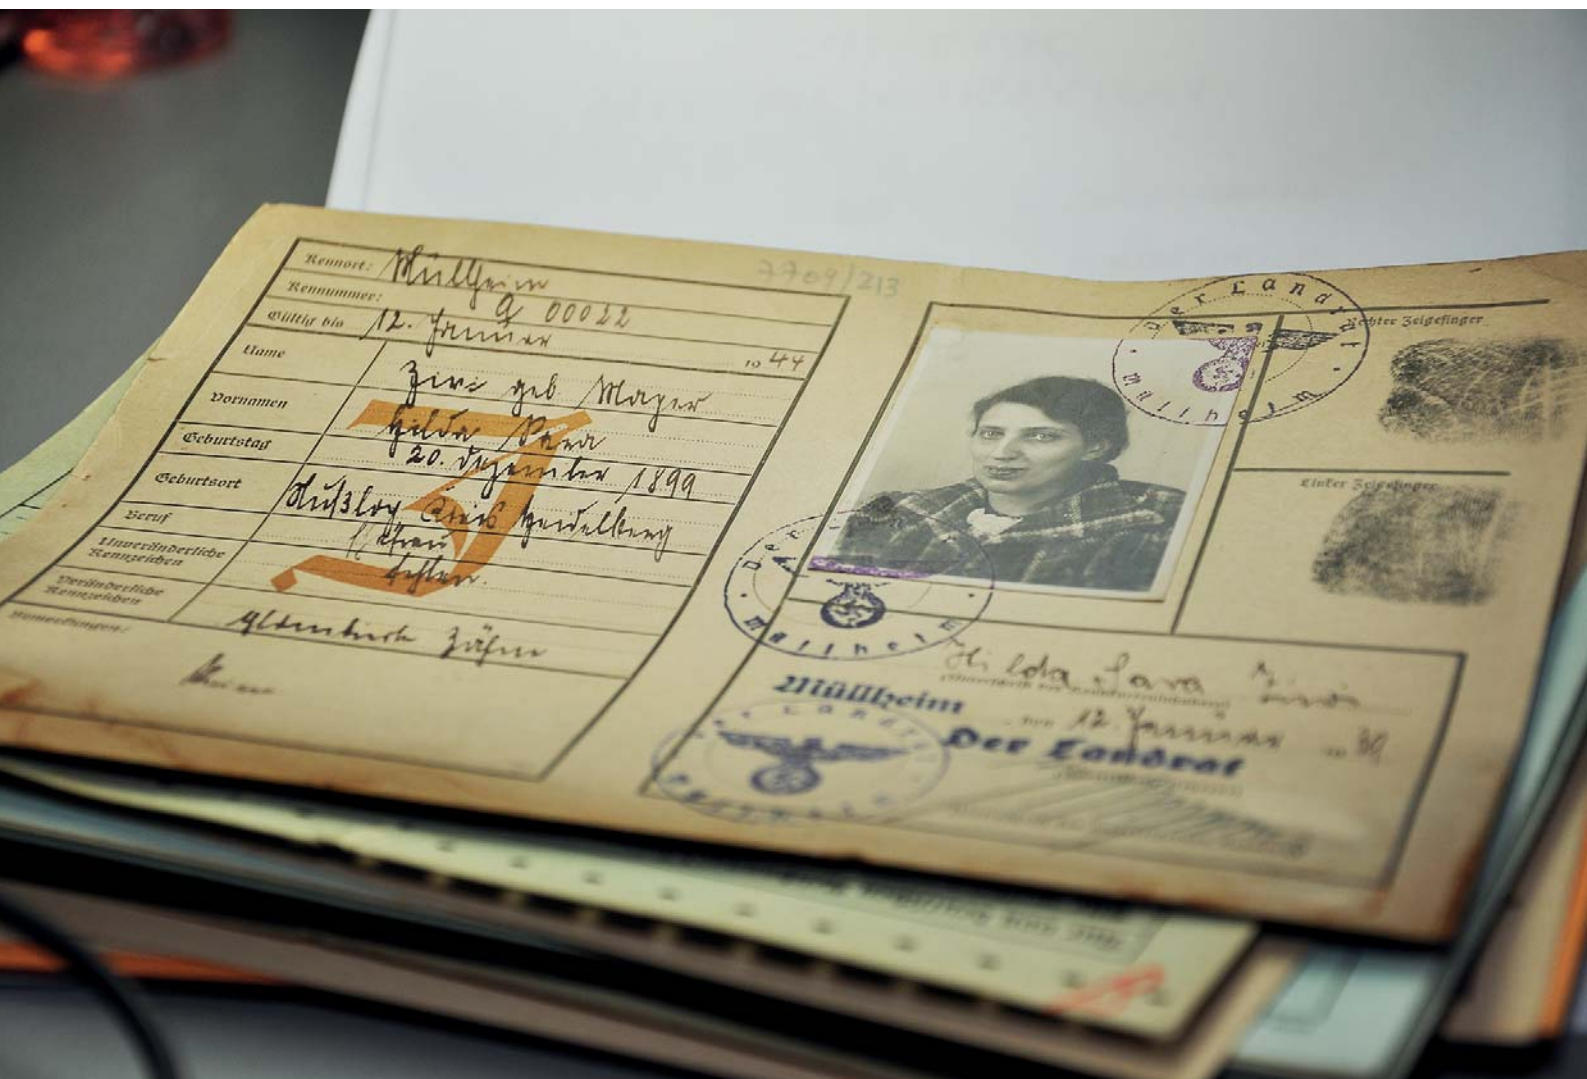 Kennort: Müllheim
7709/213
Kennummer: A 00022
Gültig bis 12. Januar 1944
Name Zivi geb Mayer
Vornamen Hilda Sara
Geburtstag 20. Dezember 1899
Geburtsort Nußloch Kreis Heidelberg
Beruf Ehefrau
Unveränderliche Kennzeichen fehlen.
Veränderliche Kennzeichen Zähne
Bemerkungen: Keine
J
Der Landrat
Müllheim
Rechter Zeigefinger
Linker Zeigefinger
Der
Müllheim
Hilda Sara Zivi
Müllheim den 12. Januar 1939
Der Landrat
Der Landrat
Müllheim